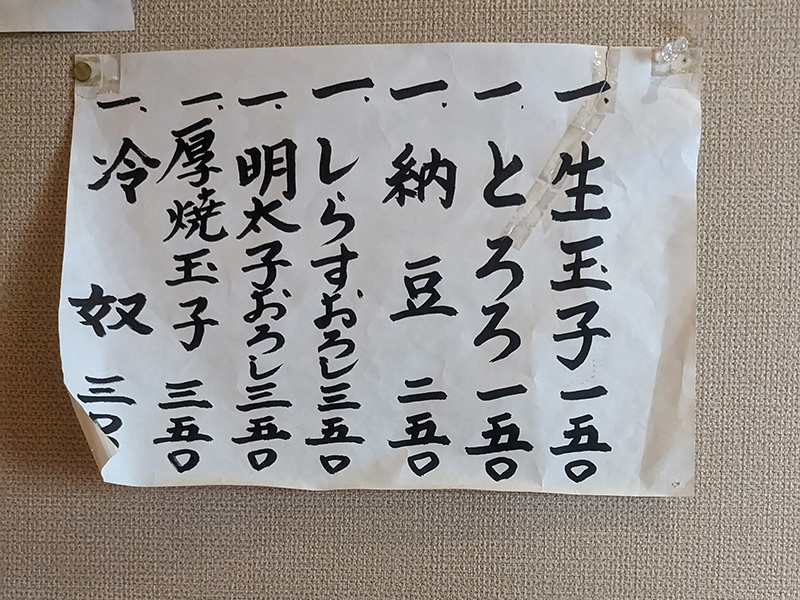 一、生玉子一五〇
一、とろろ一五〇
一、納豆二五〇
一、しらすおろし三五〇
一、明太子おろし三五〇
一、厚焼玉子三五〇
一、冷奴三〇